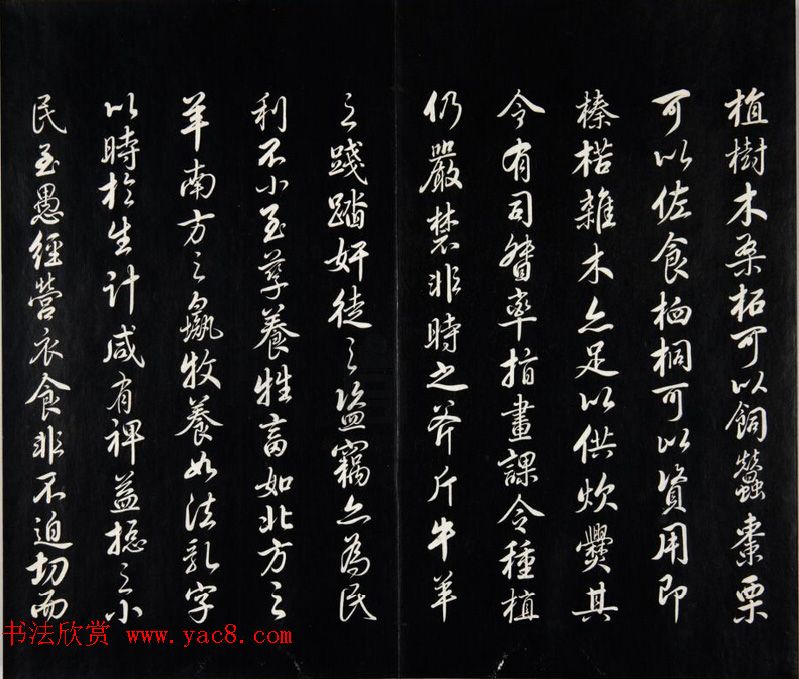 植樹木桑柘可以飼蠶棗栗
可以佐食桕桐可以資用即
榛楛雜木亦足以供炊爨其
令有司督率指畫課令種植
仍嚴禁非時之斧斤牛羊
之踐踏奸徒之盜竊亦為民
利不小至孳養牲畜如北方之
羊南方之彘牧養如法乳字
以時於生計咸有裨益搃之小
民至愚經營衣食非不迫切而
书法欣赏 www.yac8.com